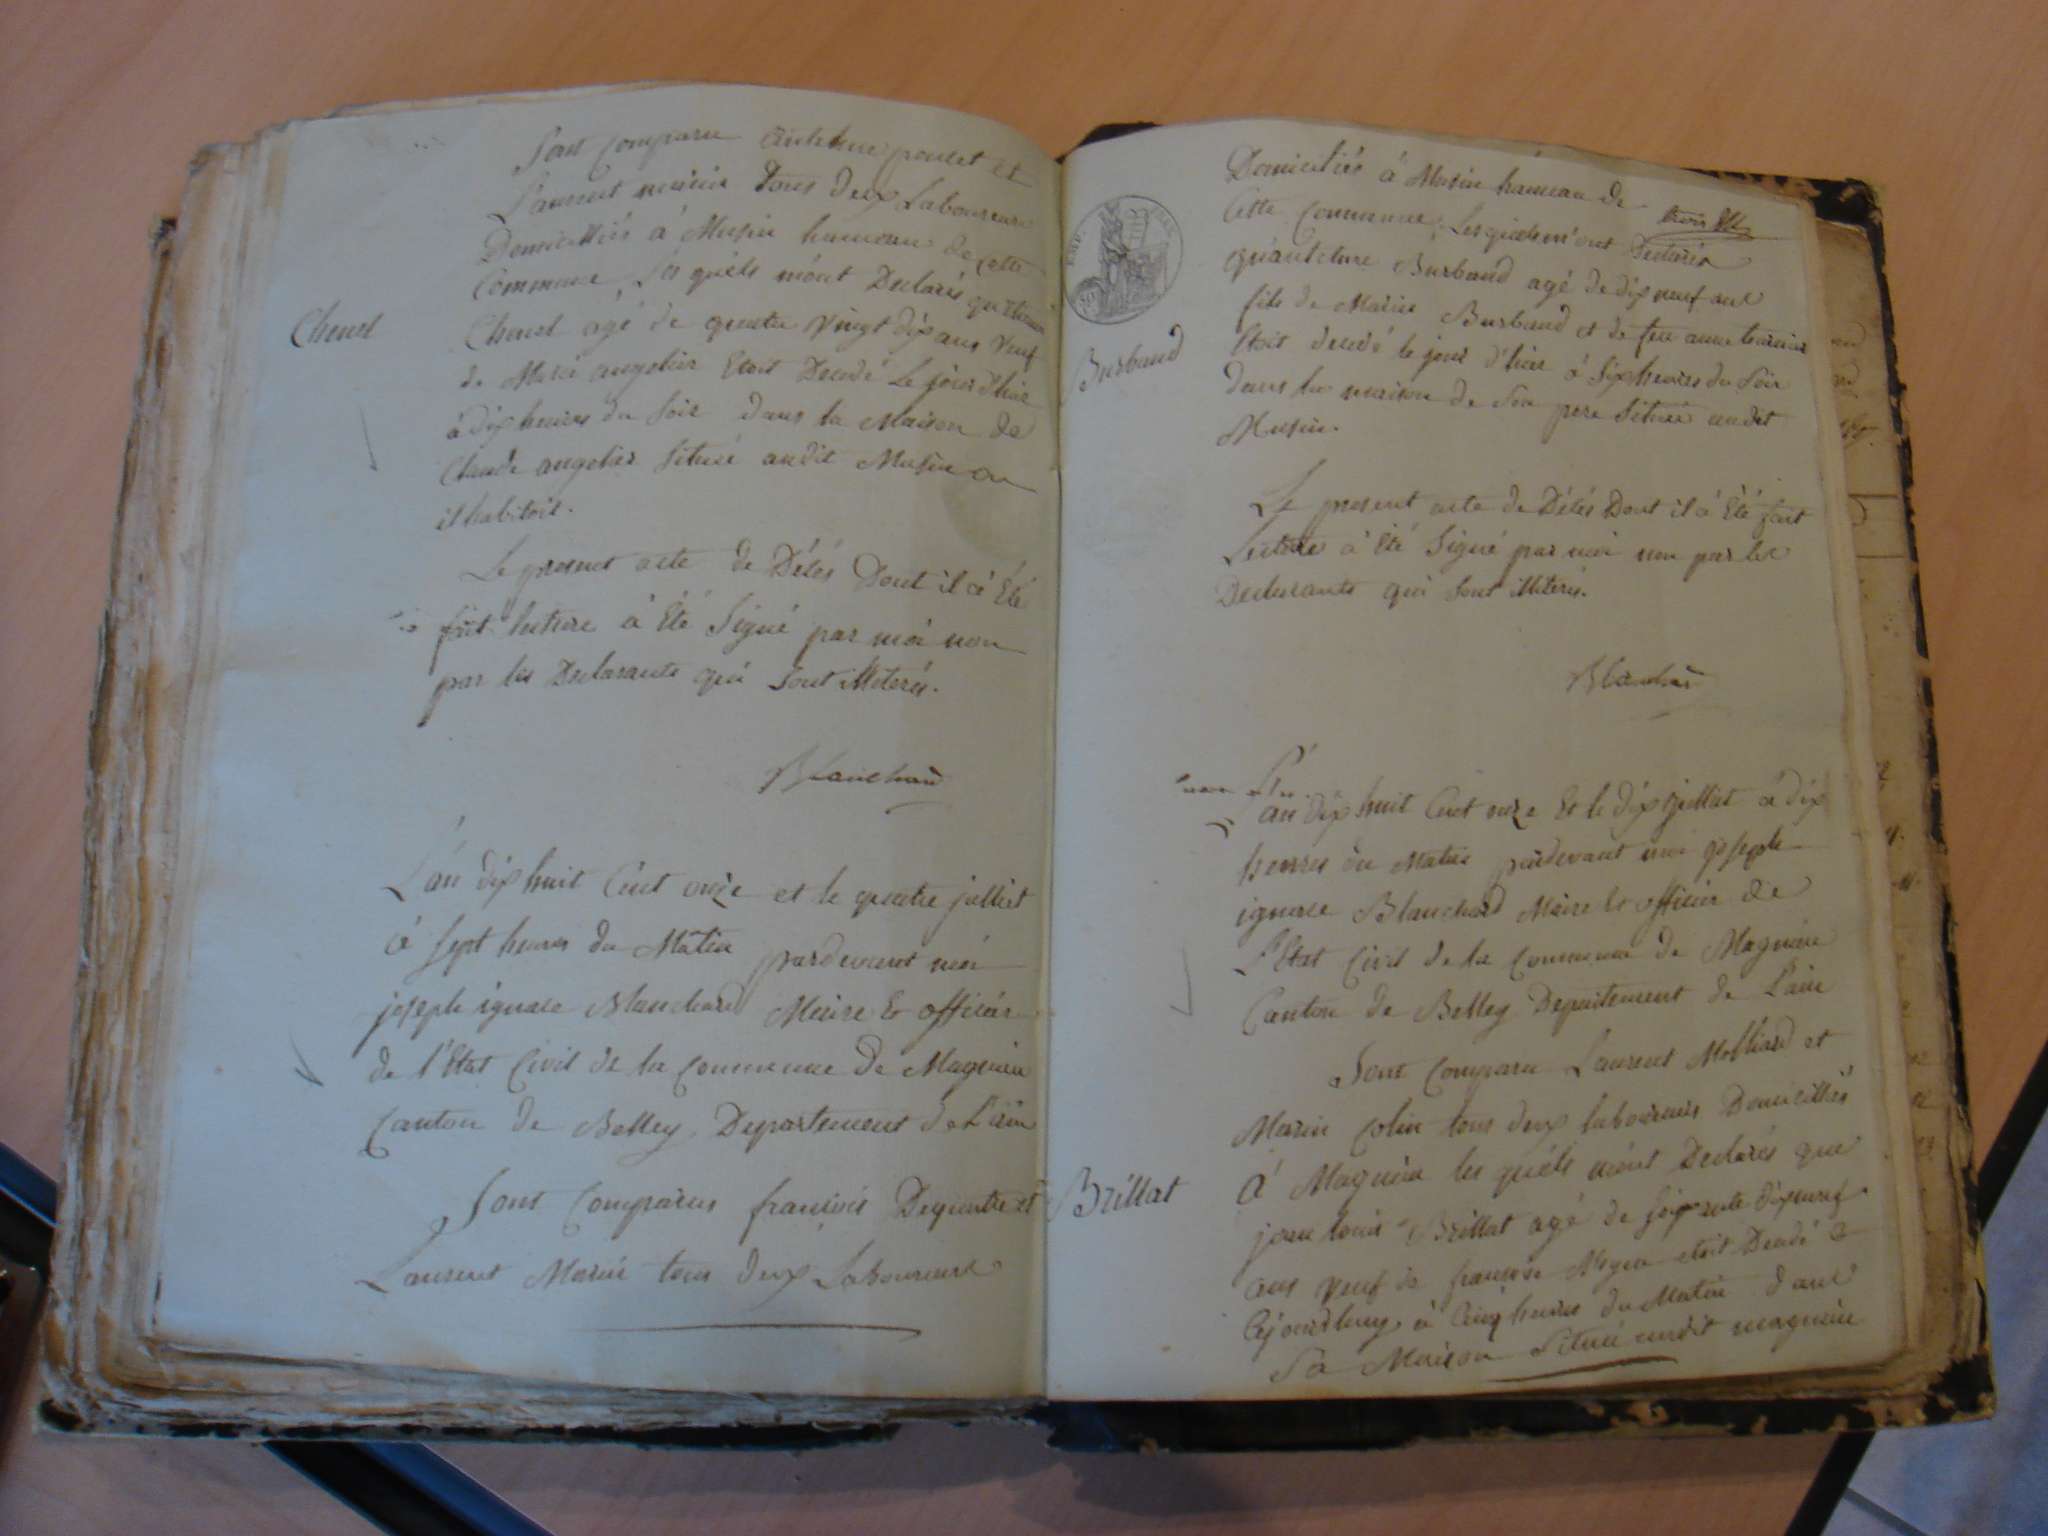 Sont Comparu Antelme poncet et
Laurent marin tous deux Laboureurs
Domicilliés à Musin hameau de cette
Commune, Les quéls m'ont Declarés qu'
Chenel
Chenel agé de quatre vingt dix ans veuf
de angelier Etoit Decedé Le jour d'hier
à dix heures du Soir dans la Maison de
Claude angelier Situeé audit Musin ou
il habitoit.
Le present acte de Décés Dont il à Eté
fait lecture à Eté Signé par moi non
par les Declarants qui Sont illiterés.
Blanchard
L'an dix huit Cent onze et le quatre juilliet
à Sept heures du Matin pardevant moi
joseph ignace Blanchard Maire & officier
de l'Etat Civil de la Commune de Magnieu
Canton de Belley Departement de L'ain
Sont Comparus francois Dequatre et
Laurent Marin tous deux Laboureurs
Domiciliés à Musin hameau de
Cette Commune; Les quels m'ont Declarés
qu'antelme Burbaud agé de dix neuf ans
Burbaud
fils de Marin Burbaud et de feu anne
Etoit decedé le jour d'hier à Six heures du Soir
dans la maison de Son pere Situeé audit
Musin.
Le present acte de Décés Dont il à Eté fait
Lecture à Eté Signé par moi non par les
Declarants qui Sont illiterés.
Blanchard
L'an dix huit Cent onze Et le dix juilliat à dix
heures du Matin pardevant moi joseph
ignace Blanchard Maire & officier de
L'Etat Civil de la Commune de Magnieu
Canton de Belley Departement de L'ain
Sont Comparu Laurent Molliard et
Marin Colin tous deux laboureurs Domicilliés
Brillat
à Magnieu les quéls m'ont Declarés que
jean louis Brillat agé de Soixante dix neuf
ans veuf de francoise etoit Decedé
Cejourdhuy à Cinq heures du Matin dans
Sa Maison Situeé audit magnieu